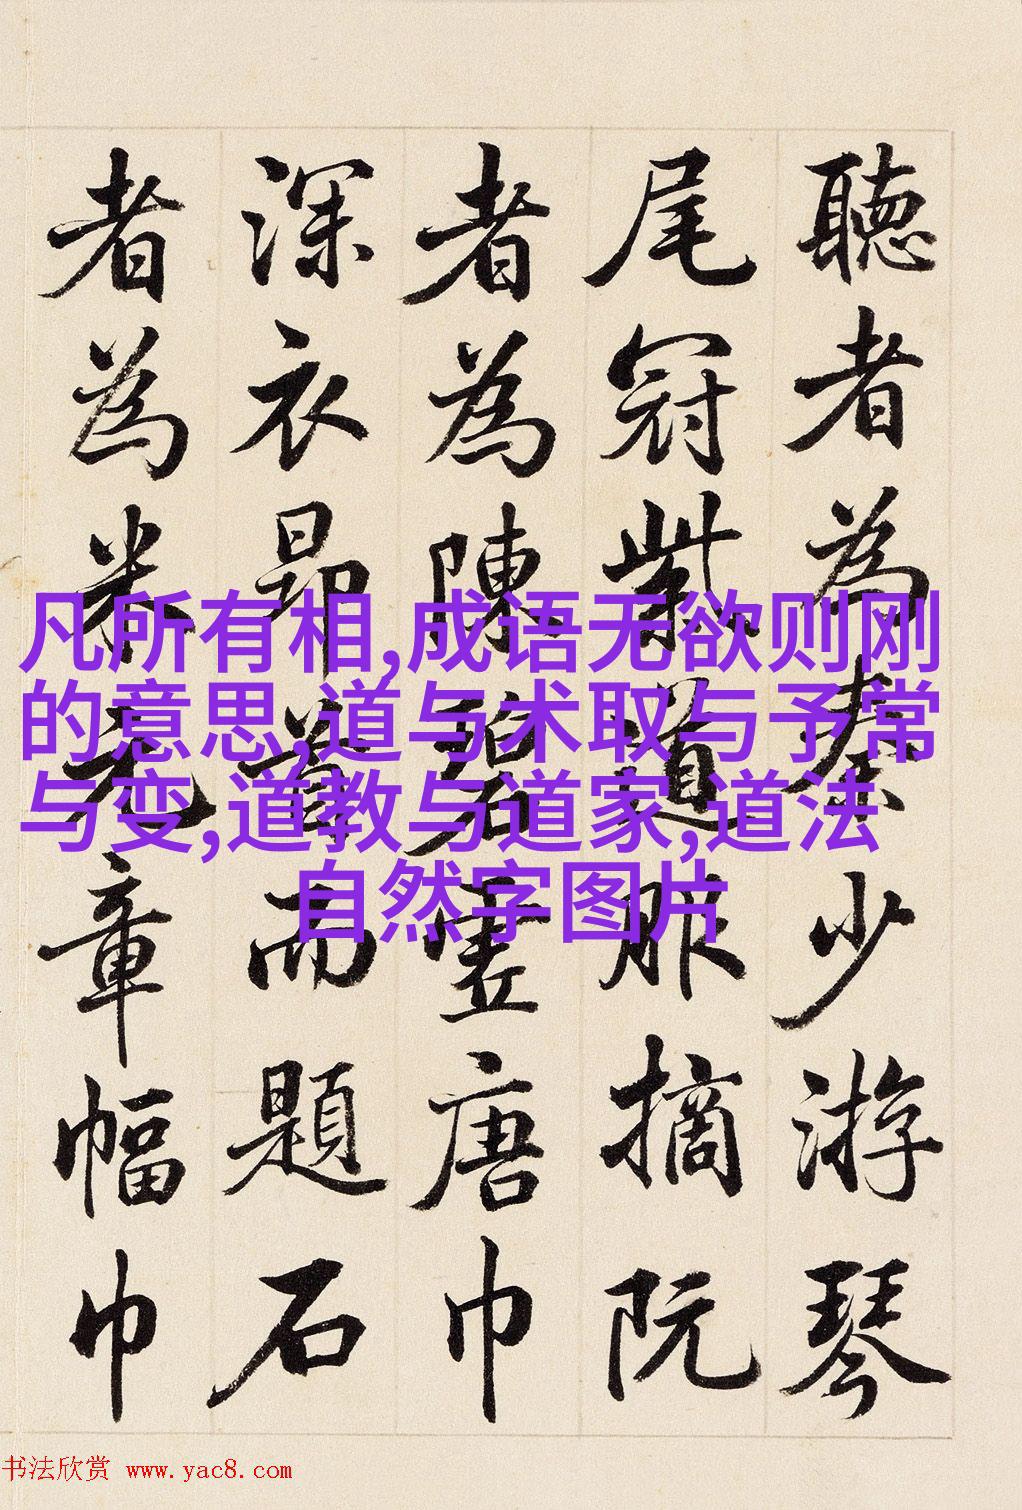 聽者為秦少游琴
尾冠紫道服摘阮
者為陳碧虛唐巾
深衣昂首而題石
者為米元章幅巾
凡所有相,成语无欲则刚
的意思,道与术取与予常
与变,道教与道家,道法
自然字图片
书法欣赏 www.yac8.com